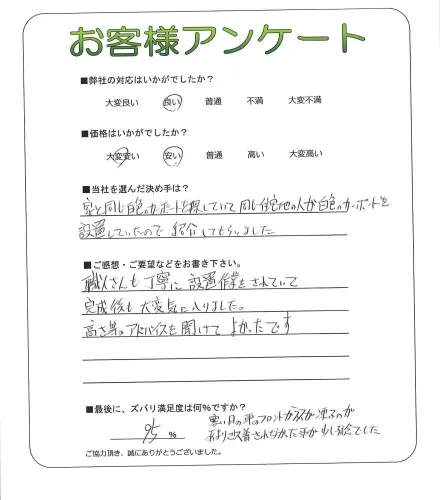 お客様アンケート
■弊社の対応はいかがでしたか？
大変良い 良い 普通 不満 大変不満
■価格はいかがでしたか？
大変安い 安い 普通 高い 大変高い
■当社を選んだ決め手は？
家と同じ白色のカーポートを探していて 同じ住宅地の人が白色のカーポートを
設置していたので 紹介してもらいました
■ご感想・ご要望などをお書き下さい。
職人さんも丁寧に 設置作業をされていて
完成後も大変気に入りました。
高さ等のアドバイスを聞けて よかったです
■最後に、ズバリ満足度は何％ですか？
95 %
寒い日の車のフロントガラスが凍るのが
あまり改善されなかった事が少し残念でした
ご協力頂き、誠にありがとうございました。